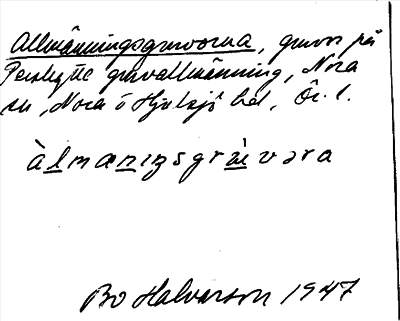 Allmänningsgruvorna, gruvor på
Pershytte gruvallmänning, Nora
sn, Nora o Hjulsjö bsl, Ör. l.
àlmænɪŋsgrùvəra
Bo Halvarson 1947